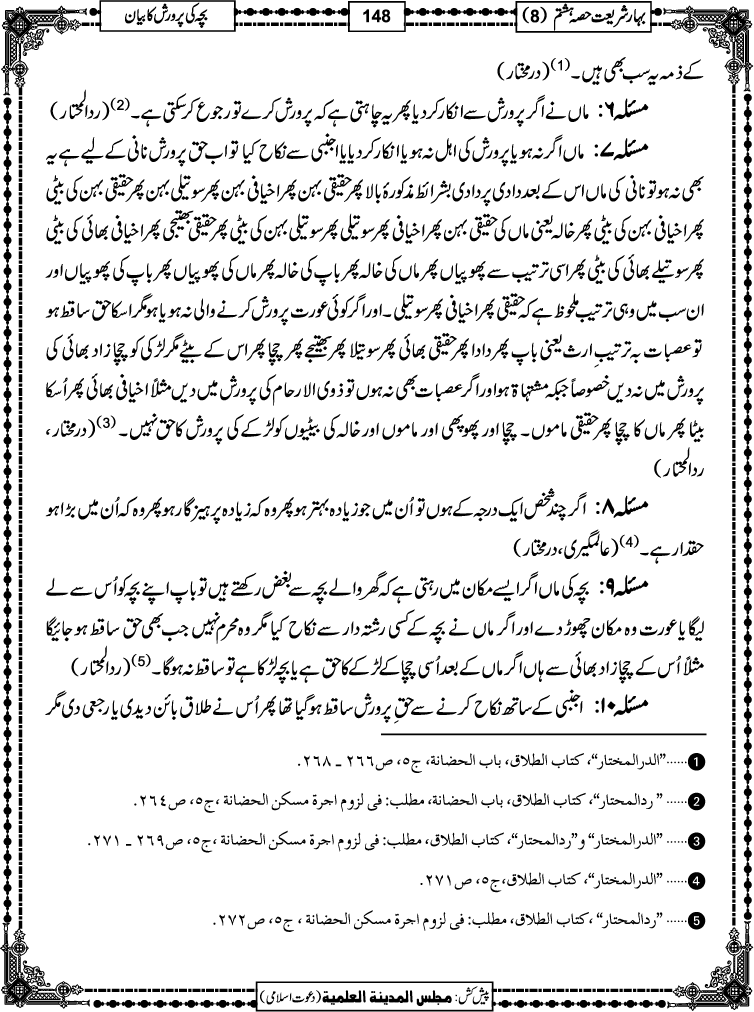 بہارِ شریعت حصہ ہشتم (8)
148
بچہ کی پرورش کا بیان
کے ذمہ یہ سب بھی ہیں۔(1) (درمختار)
مسئلہ ۶: ماں نے اگر پرورش سے انکار کر دیا پھر یہ چاہتی ہے کہ پرورش کرے تو رجوع کر سکتی ہے۔(2) (ردالمحتار)
مسئلہ ۷: ماں اگر نہ ہو یا پرورش کی اہل نہ ہو یا انکار کر دیا یا اجنبی سے نکاح کیا تو اب حق پرورش نانی کے لیے ہے یہ
بھی نہ ہو تو نانی کی ماں اس کے بعد دادی پردادی بشرائط مذکورۂ بالا پھر حقیقی بہن پھر اخیافی بہن پھر سوتیلی بہن پھر حقیقی بہن کی بیٹی
پھر اخیافی بہن کی بیٹی پھر خالہ یعنی ماں کی حقیقی بہن پھر اخیافی پھر سوتیلی پھر سوتیلی بہن کی بیٹی پھر حقیقی بھتیجی پھر اخیافی بھائی کی بیٹی
پھر سوتیلے بھائی کی بیٹی پھر اسی ترتیب سے پھوپیاں پھر ماں کی خالہ پھر باپ کی خالہ پھر ماں کی پھوپیاں پھر باپ کی پھوپیاں اور
ان سب میں وہی ترتیب ملحوظ ہے کہ حقیقی پھر اخیافی پھر سوتیلی۔ اور اگر کوئی عورت پرورش کرنے والی نہ ہو یا ہو مگر اسکا حق ساقط ہو
تو عصبات بہ ترتیبِ ارث یعنی باپ پھر دادا پھر حقیقی بھائی پھر سوتیلا پھر بھتیجے پھر چچا پھر اس کے بیٹے مگر لڑکی کو چچا زاد بھائی کی
پرورش میں نہ دیں خصوصاً جبکہ مشتہاۃ ہو اور اگر عصبات بھی نہ ہوں تو ذوی الارحام کی پرورش میں دیں مثلاً اخیافی بھائی پھر اُسکا
بیٹا پھر ماں کا چچا پھر حقیقی ماموں۔ چچا اور پھوپھی اور ماموں اور خالہ کی بیٹیوں کو لڑکے کی پرورش کا حق نہیں۔(3) (درمختار،
ردالمحتار)
مسئلہ ۸: اگر چند شخص ایک درجہ کے ہوں تو اُن میں جو زیادہ بہتر ہو پھر وہ کہ زیادہ پرہیزگار ہو پھر وہ کہ اُن میں بڑا ہو
حقدار ہے۔(4) (عالمگیری، درمختار)
مسئلہ ۹: بچہ کی ماں اگر ایسے مکان میں رہتی ہے کہ گھر والے بچہ سے بغض رکھتے ہیں تو باپ اپنے بچہ کو اُس سے لے
لیگا یا عورت وہ مکان چھوڑ دے اور اگر ماں نے بچہ کے کسی رشتہ دار سے نکاح کیا مگر وہ محرم نہیں جب بھی حق ساقط ہو جائیگا
مثلاً اُس کے چچا زاد بھائی سے ہاں اگر ماں کے بعد اُسی چچا کے لڑکے کا حق ہے یا بچہ لڑکا ہے تو ساقط نہ ہوگا۔(5) (ردالمحتار)
مسئلہ ۱۰: اجنبی کے ساتھ نکاح کرنے سے حقِ پرورش ساقط ہو گیا تھا پھر اُس نے طلاق بائن دیدی یا رجعی دی مگر
1 ......"الدرالمختار"، کتاب الطلاق، باب الحضانة، ج٥، ص٢٦٦ ـ ٢٦٨.
2 ...... "ردالمحتار"، کتاب الطلاق، باب الحضانة، مطلب: فی لزوم اجرة مسکن الحضانة ،ج٥، ص٢٦٤.
3 ...... "الدرالمختار" و"ردالمحتار"، کتاب الطلاق، مطلب: فی لزوم اجرة مسکن الحضانة ،ج٥، ص٢٦٩ ـ ٢٧١.
4 ...... "الدرالمختار"، کتاب الطلاق،ج٥، ص٢٧١.
5 ...... "ردالمحتار" ،کتاب الطلاق، مطلب: فی لزوم اجرة مسکن الحضانة ، ج٥، ص٢٧٢.
پیش کش: مجلس المدینة العلمیة (دعوت اسلامی)